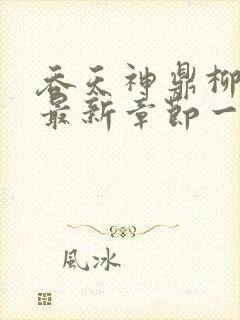 吞天神鼎柳
最新章節一
風冰